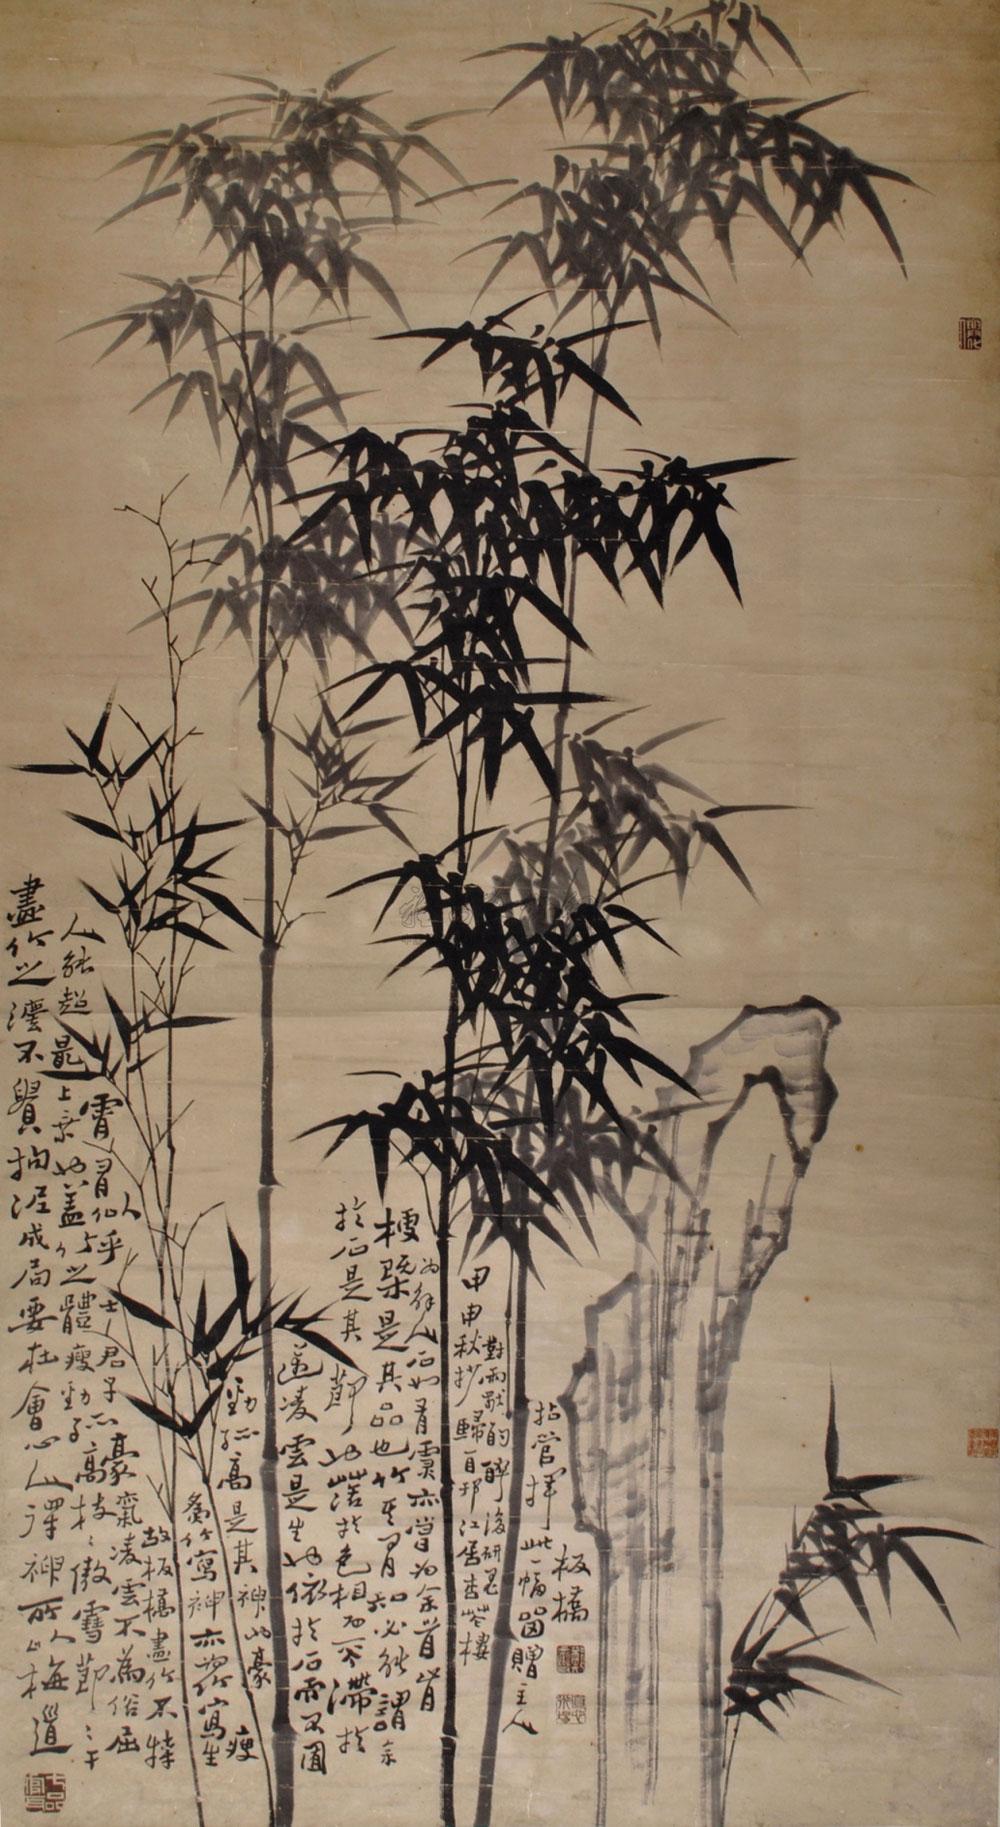 畫竹之灋不貴拘泥成局要在會心人得神所以梅道
人能超最上乘也蓋竹之體瘦勁孤高枝〻傲雪節〻干
霄有似乎士君子豪氣凌雲不為俗屈
故板橋畫竹不特
為竹寫神亦為竹寫生
瘦
勁孤高是其神也豪
邁凌雲是生也依於石而不囿
於石是其節也落於色相而不滯於
梗概是其品也竹其有知必能謂余
為解人石如有靈亦當為余首肯
甲申秋杪歸自邗江居杏花樓
對雨獨酌醉後研墨
拈管揮此一幅留贈主人
板橋
七品官耳